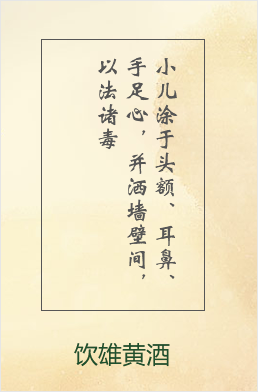 小儿涂于头额、耳鼻、
手足心，并洒墙壁间，
以法诸毒
饮雄黄酒